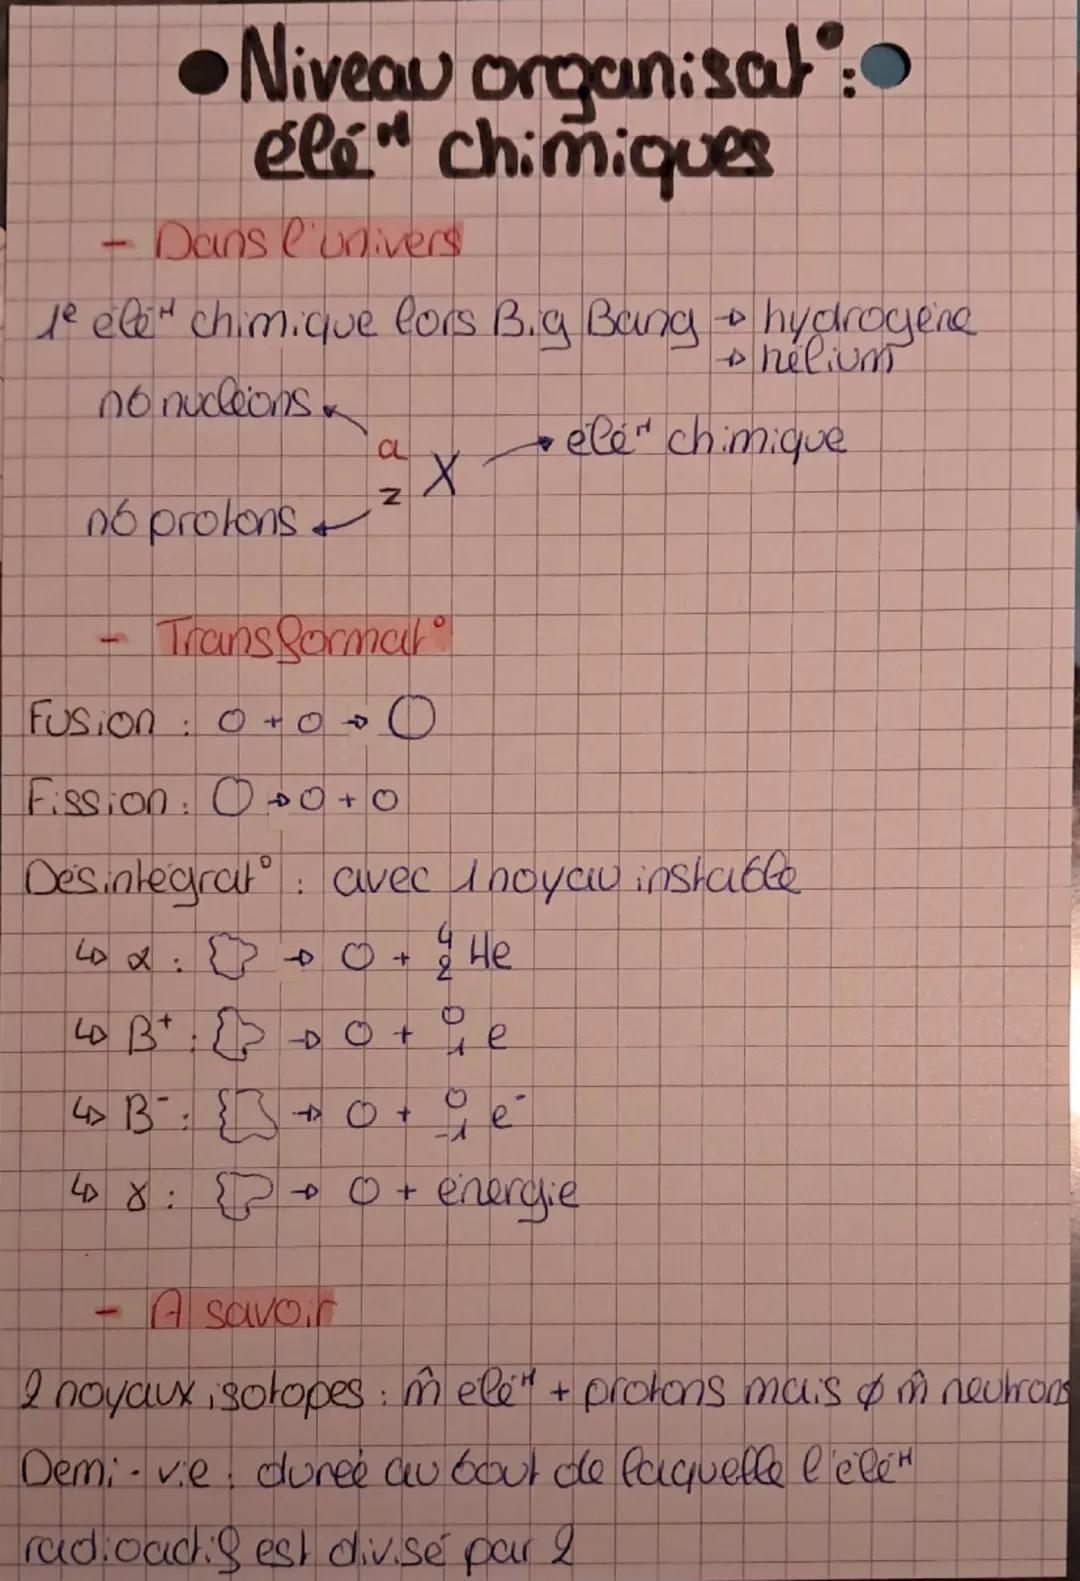 Niveau organisat° :
élé^nt chimiques
- Dans l'univers
1e élé^nt chimique lors Big Bang → hydrogène
→ hélium
nb nucléons
a
X → élé^nt chimique
z
nb protons
- Transformat°
Fusion : O + O → O
Fission : O → O + O
Désintégrat° : avec 1 noyau instable
↳ α : → O + 4 2 He
↳ B+ : → O + 0 1 e
↳ B- : → O + 0 -1 e-
↳ γ : → O + énergie
- A savoir
2 noyaux isotopes : m̂ élé^nt + protons mais ∅ m̂ neutrons
Demi-vie : durée au bout de laquelle l'élé^nt
radioactif est divisé par 2